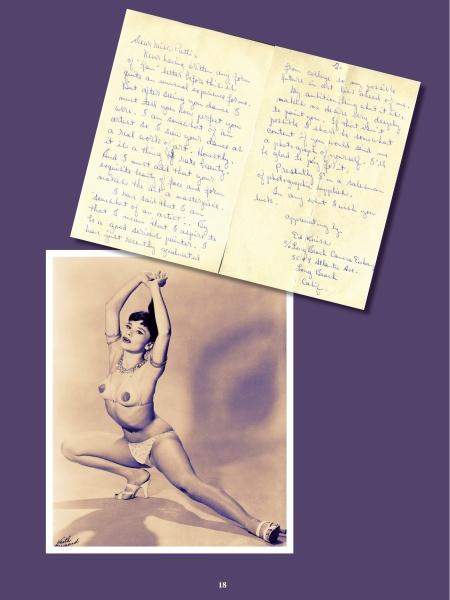 Dear Miss Patti -
Never having written any form
of "fan" letter before this is
quite an unusual experience for me.
But after seeing your dance I
must tell you how perfect you
were. I am somewhat of an
artist so I saw your dance as
a real work of art. Honestly
it is a thing of rare beauty.
And I must add that your
exquisite beauty of face and form
makes the act a masterpiece.
I have said that I am
"somewhat of an artist". By
this I mean that I aspire to
be a good serious painter. I
have just recently graduated
2-
from college so my possible
future in art lies ahead of me.
My ambition being what it is,
makes me desire very deeply
to paint you. If that isn't
possible I should be somewhat
content if you would send me
a photograph of yourself. I'll
be glad to pay for it.
Presently I'm a salesman
of photography supplies.
In any event I wish you
luck.
appreciatively,
Ed
c/o Long Beach Camera
Atlantic Ave.
Long Beach
Calif.
18